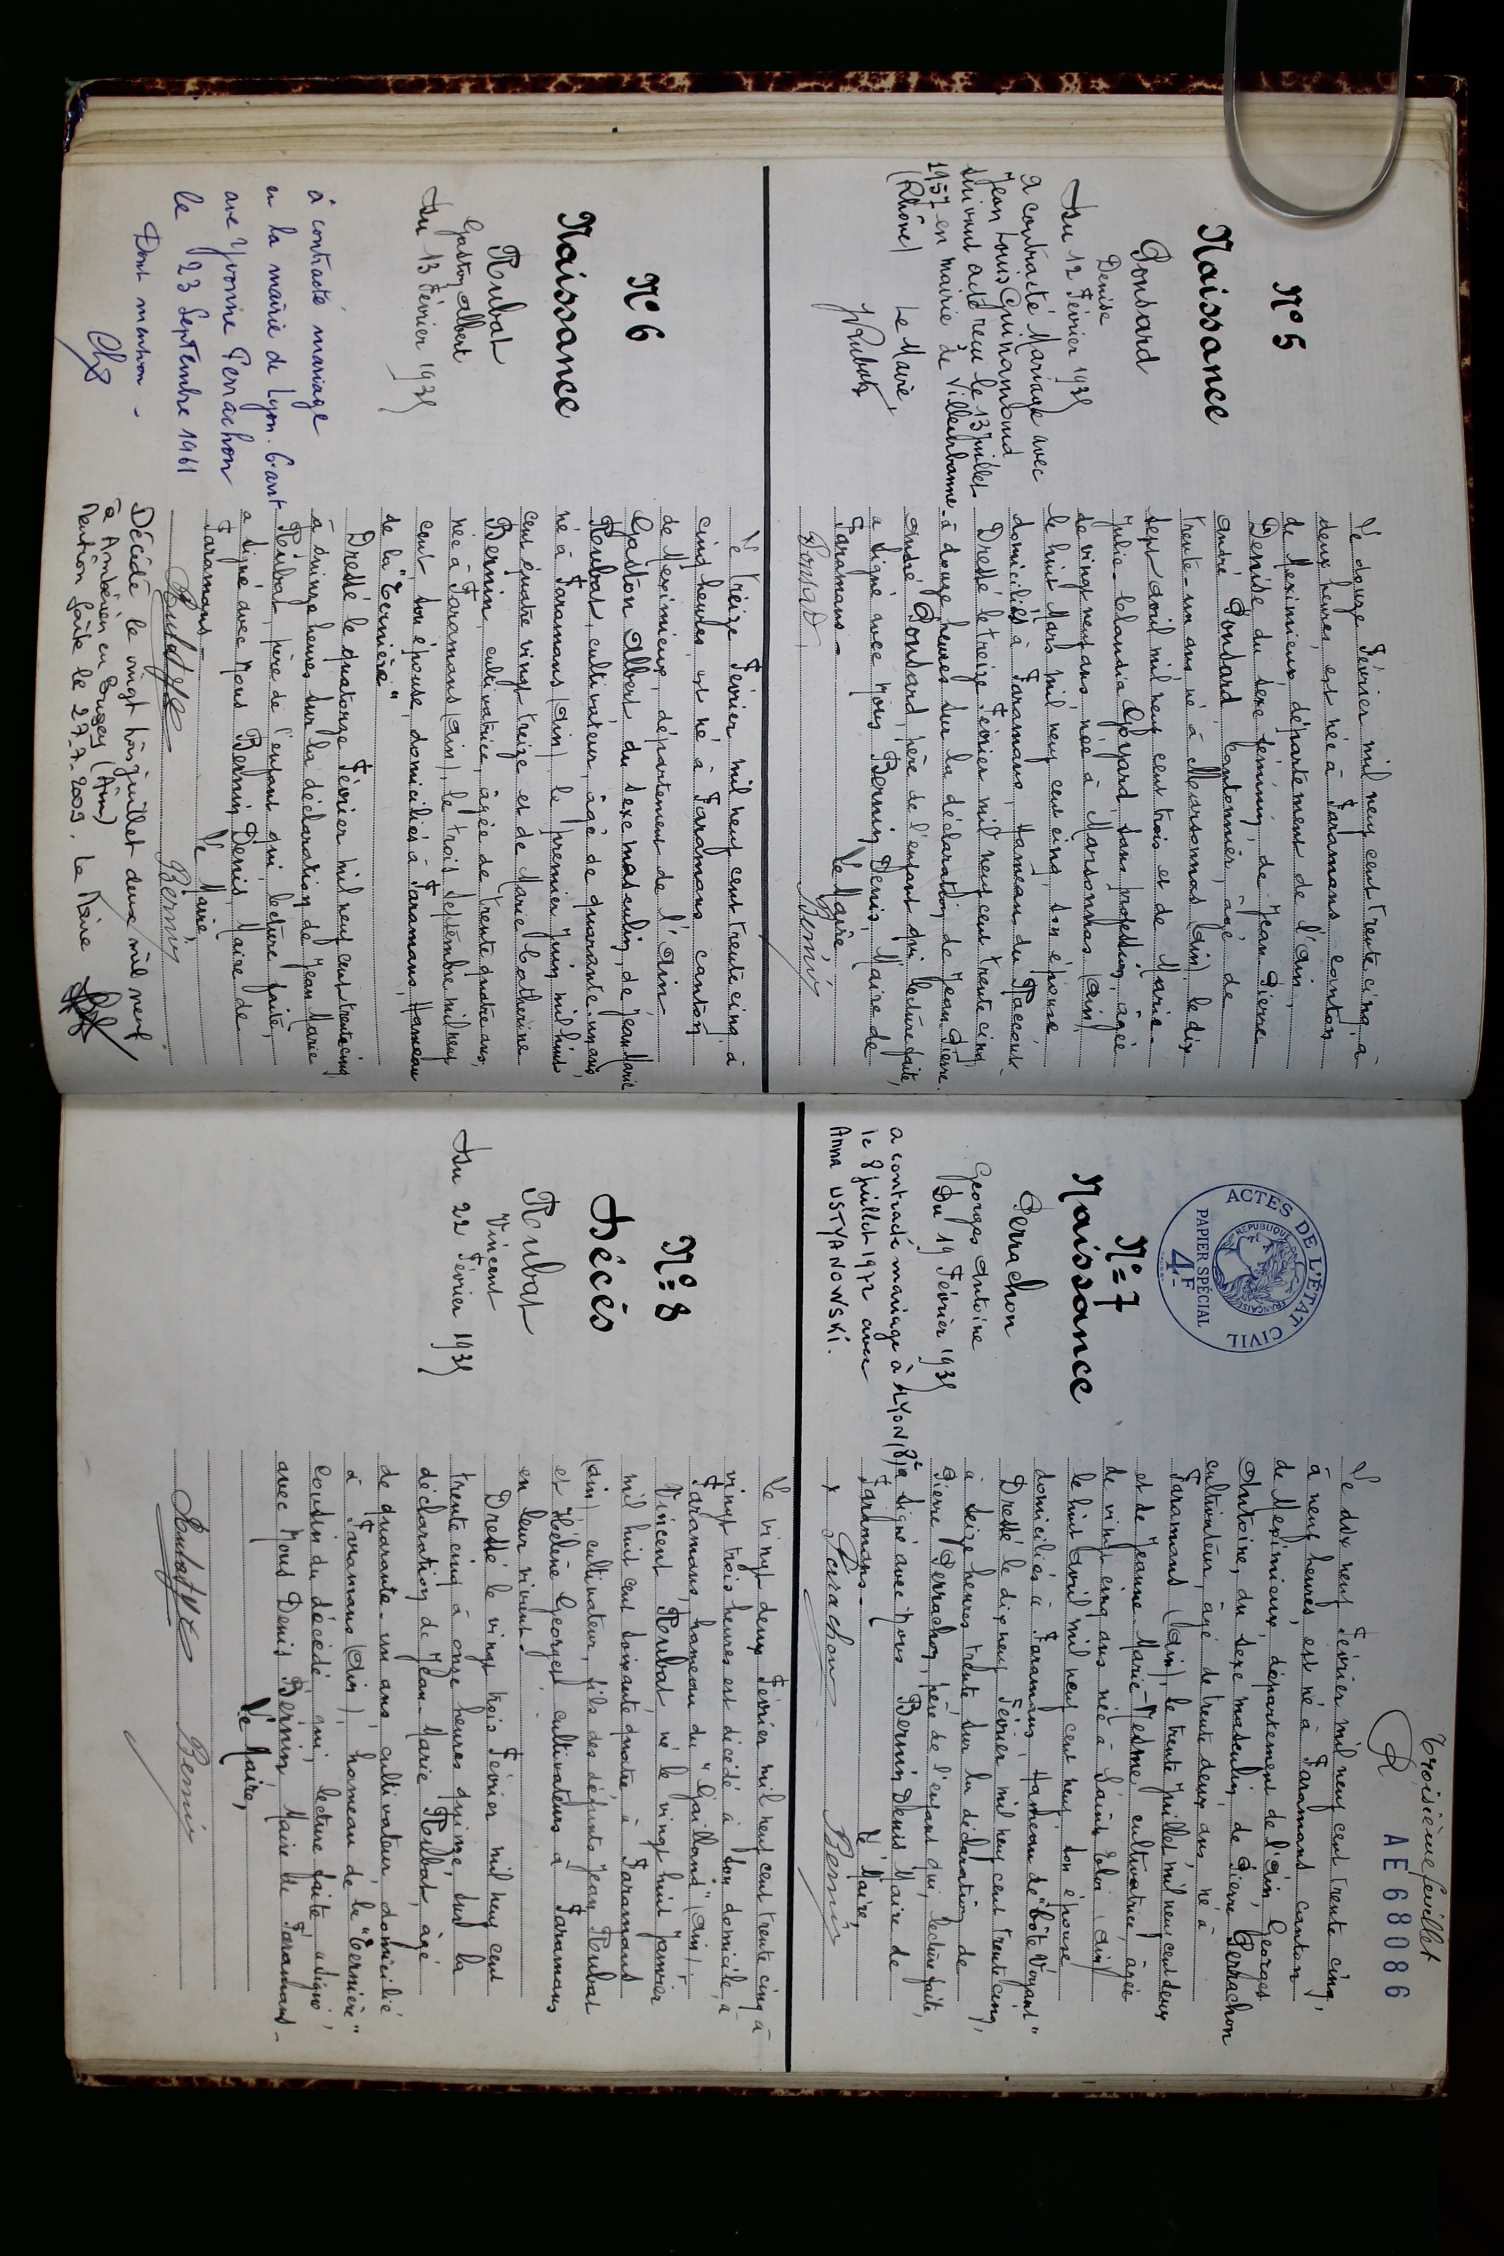 N° 5
Naissance
Ponsard
Denise
Du 12 Février 1935
a contracté Mariage avec
Jean Louis Guinamond
suivant acte reçu le 13 juillet
1957 en mairie de Villeurbanne
(Rhône) Le Maire,
Le douze Février mil neuf cent trente cinq, à
deux heures, est née à Faramans canton
de Meximieux, département de l'Ain,
Denise du sexe féminin, de Jean Pierre
André Ponsard, cantonnier, âgé de
trente-un ans, né à Marsonnas (Ain), le dix
sept avril mil neuf cent trois et de Marie-
Julie-Claudia Goyard, sans profession, âgée
de vingt neuf ans, née à Marsonnas (Ain),
le huit Mars mil neuf cent cinq, son épouse,
domiciliés à Faramans, Hameau du
Dressé le treize Février mil neuf cent trente cinq
à douze heures sur la déclaration de Jean Pierre
André Ponsard, père de l'enfant qui, lecture faite,
a signé avec Nous Bernin Denis, Maire de
Faramans.- Le Maire,
Ponsard Bernin
N° 6
Naissance
Rubat
Gaston Albert
Du 13 Février 1935
à contracté mariage
en la mairie de Lyon. 6e art
avec Yvonne Perrachon
le 23 Septembre 1961
Dont mention -
Le treize Février mil neuf cent trente cinq, à
cinq heures, est né à Faramans, canton
de Meximieux, département de l'Ain,
Gaston Albert, du sexe masculin, de Jean Marie
Rubat, cultivateur, âgé de quarante-un ans,
né à Faramans (Ain) le premier Juin mil huit
cent quatre vingt treize et de Marie Catherine
Bernin, cultivatrice, âgée de trente quatre ans,
née à Faramans (Ain), le trois Septembre mil neuf
cent, son épouse, domiciliés à Faramans, Hameau
de la "Ternière"
Dressé le quatorze Février mil neuf cent trente cinq
à quinze heures sur la déclaration de Jean Marie
Rubat, père de l'enfant qui, lecture faite,
a signé avec Nous Bernin Denis, Maire de
Faramans.- Le Maire,
Rubat Bernin
Décédé le vingt trois juillet deux mil neuf
à Ambérieu en Bugey (Ain)
Mention faite le 27.7.2009. Le Maire
Troisième feuillet
AE 68086
ACTES DE L'ÉTAT CIVIL
RÉPUBLIQUE FRANÇAISE
PAPIER SPÉCIAL
4 F
N° = 7
Naissance
Perrachon
Georges Antoine
Du 19 Février 1935
a contracté mariage à LYON (8e)
le 8 juillet 1972 avec
Anna USTYANOWSKI.
Le dix neuf Février mil neuf cent trente cinq,
à neuf heures, est né à Faramans, canton
de Meximieux, département de l'Ain, Georges
Antoine, du sexe masculin, de Pierre Perrachon
cultivateur, âgé de trente deux ans, né à
Faramans (Ain), le trente Juillet mil neuf cent deux
et de Jeanne-Marie-Mesme cultivatrice, âgée
de vingt cinq ans née à Sainte Eloi (Ain)
le huit Avril mil neuf cent neuf, son épouse
domiciliés à Faramans, Hameau de "Côte Voyant"
Dressé le dix neuf Février mil neuf cent trente cinq,
à seize heures trente sur la déclaration de
Pierre Perrachon, père de l'enfant qui, lecture faite,
a signé avec Nous Bernin Denis Maire de
Faramans.- Le Maire,
x Perrachon Bernin
N° = 8
Décès
Rubat
Vincent
Du 22 Février 1935
Le vingt deux Février mil neuf cent trente cinq à
vingt trois heures est décédé à son domicile, à
Faramans, hameau du "Gailland" (Ain)
Vincent Rubat né le vingt huit Janvier
mil huit cent soixante quatre, à Faramans
(Ain) cultivateur, fils des défunts Jean Rubat
et Hélène Georget cultivateurs à Faramans
en leur vivant.
Dressé le vingt trois Février mil neuf cent
trente cinq à onze heures quinze, sur la
déclaration de Jean-Marie Rubat, âgé
de quarante-un ans, cultivateur domicilié
à Faramans (Ain), hameau de la "Ternière"
cousin du décédé qui, lecture faite, a signé,
avec Nous Denis Bernin Maire de Faramans.-
Le Maire,
Rubat Bernin